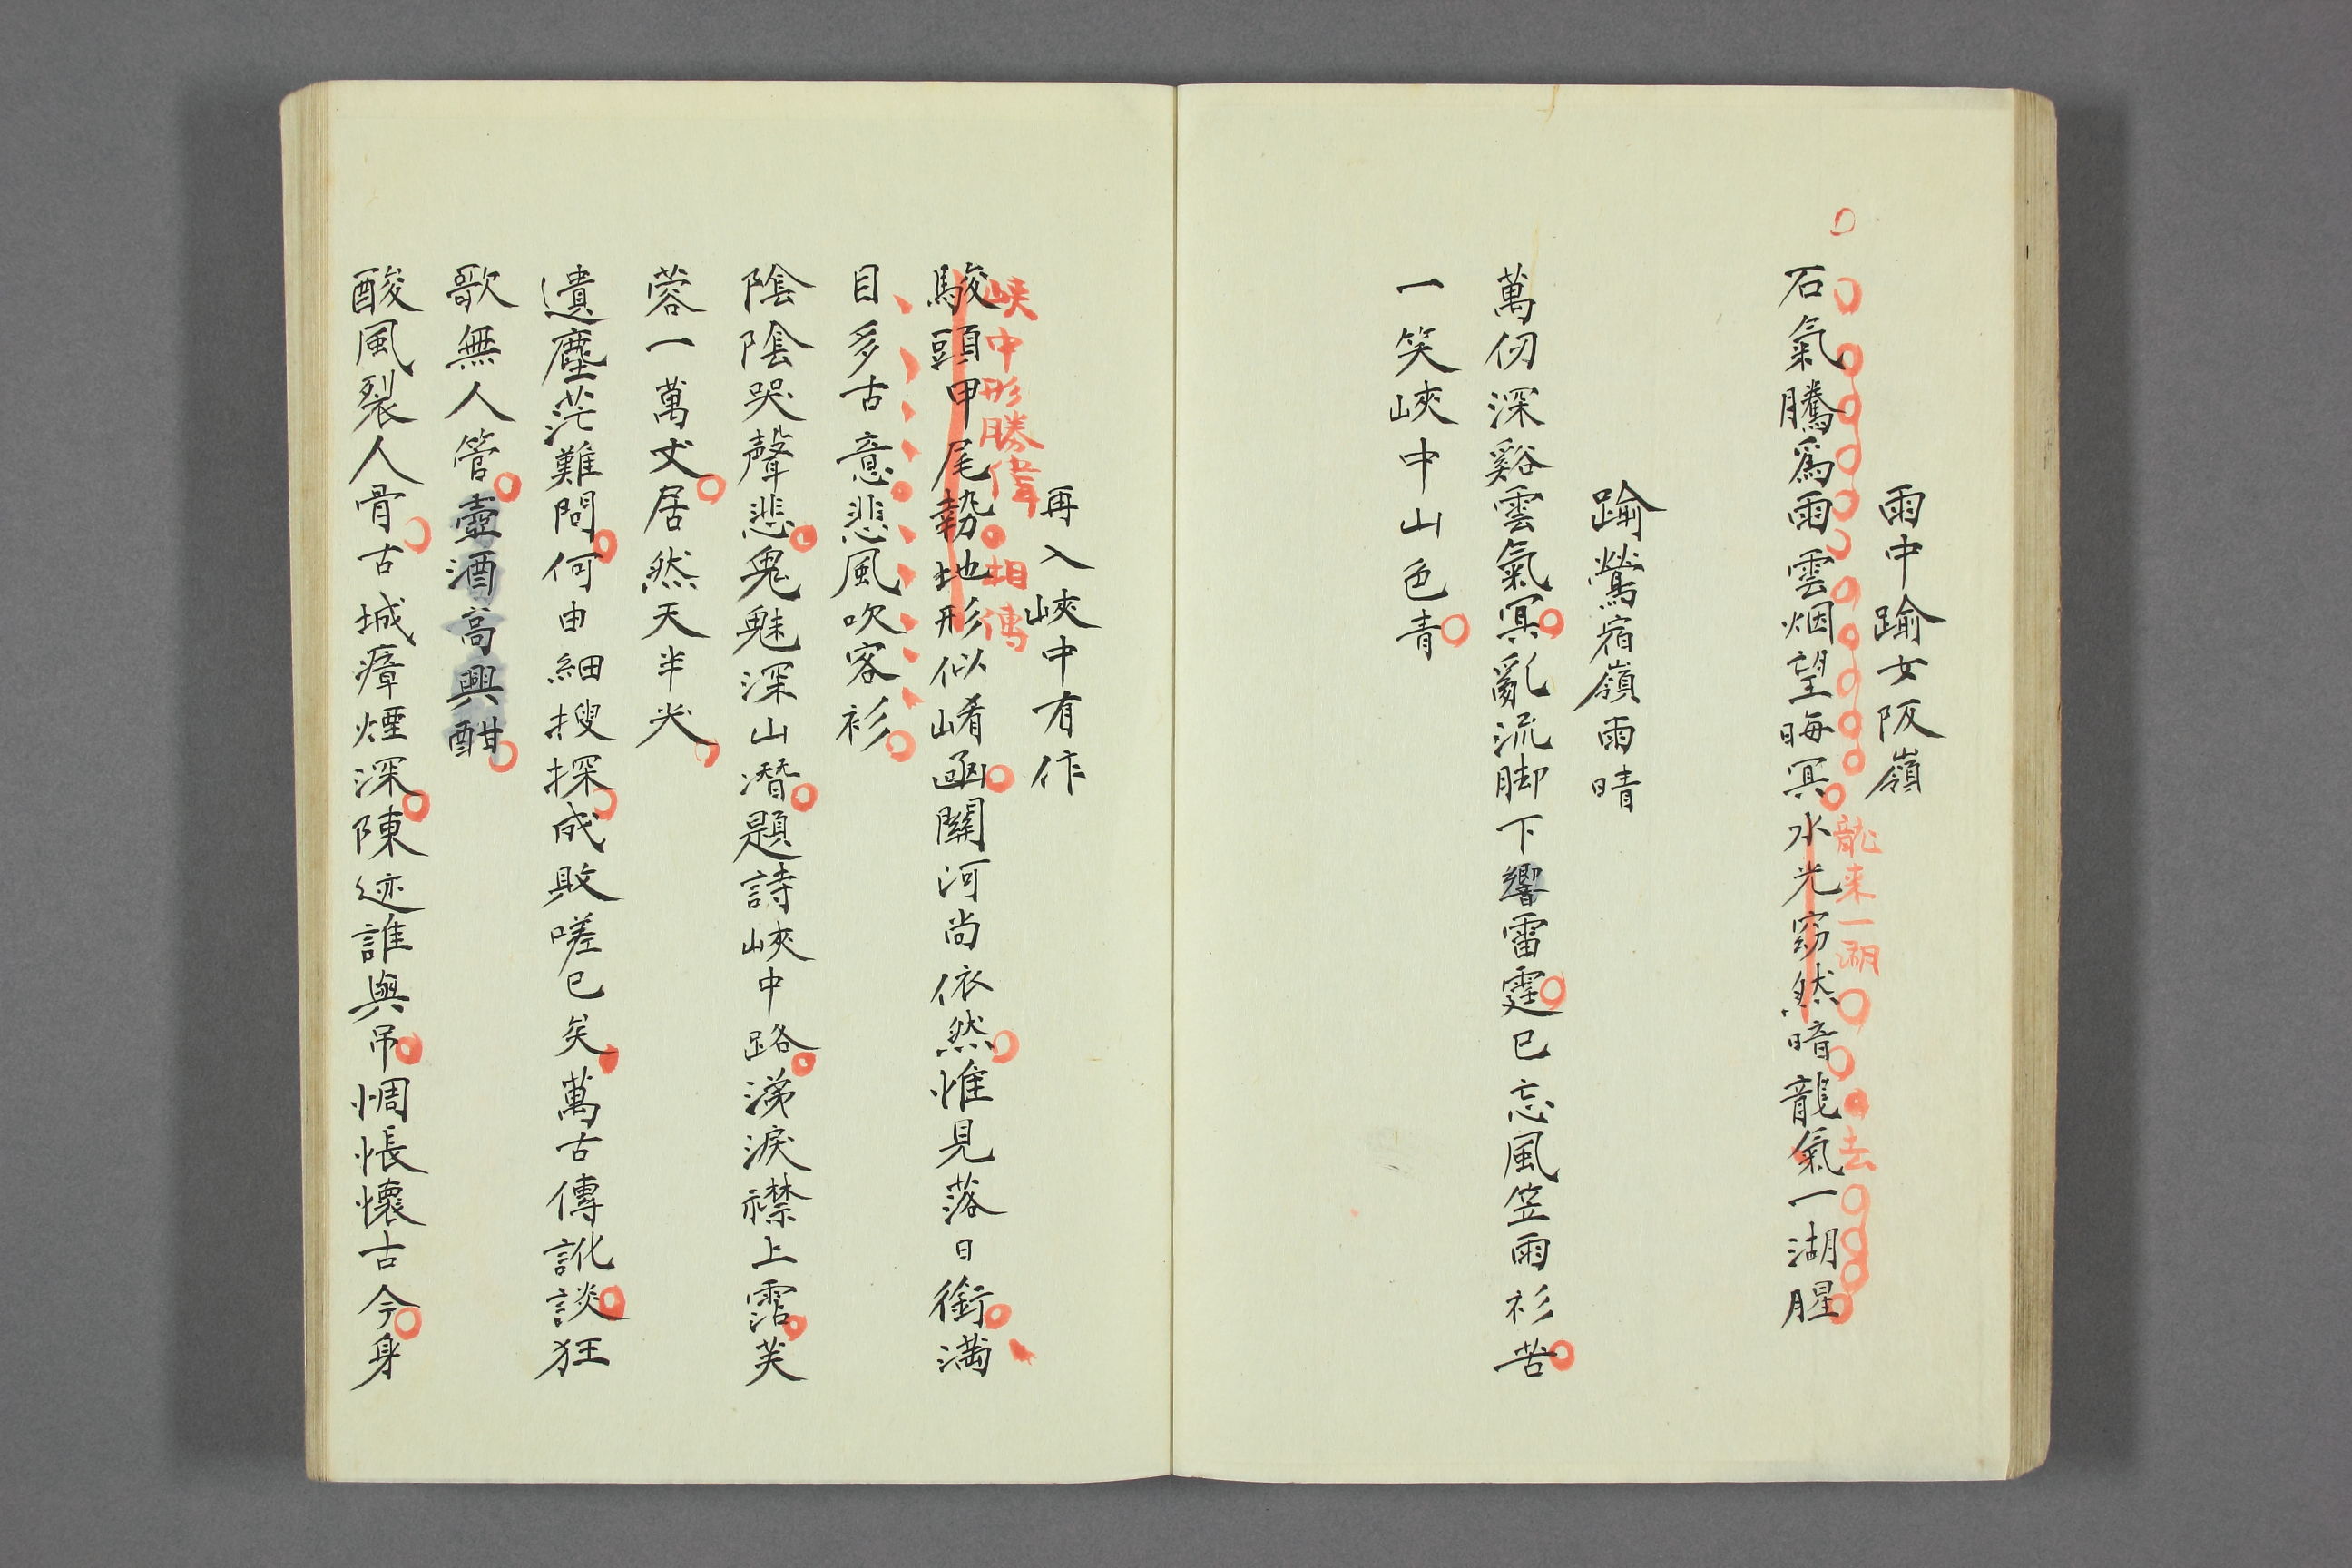 雨中踰女阪嶺
石氣騰爲雨雲烟望晦冥水光窈然暗龍氣一湖腥
龍来一湖
去
踰鶯宿嶺雨晴
萬仞深谿雲氣冥亂流脚下響雷霆已忘風笠雨衫苦
一笑峽中山色青
再入峽中有作
峡中形勝偉相傳
駿頭甲尾勢地形似崤凾關河尚依然惟見落日銜満
目多古意悲風吹客衫
陰陰哭聲悲鬼魅深山潛題詩峽中路涕淚襟上霑芙
蓉一萬丈居然天半尖
遺塵茫難問何由細搜探成敗嗟已矣萬古傳訛談狂
歌無人管壺酒高興酣
酸風裂人骨古城瘴煙深陳迹誰與弔惆悵懷古今身